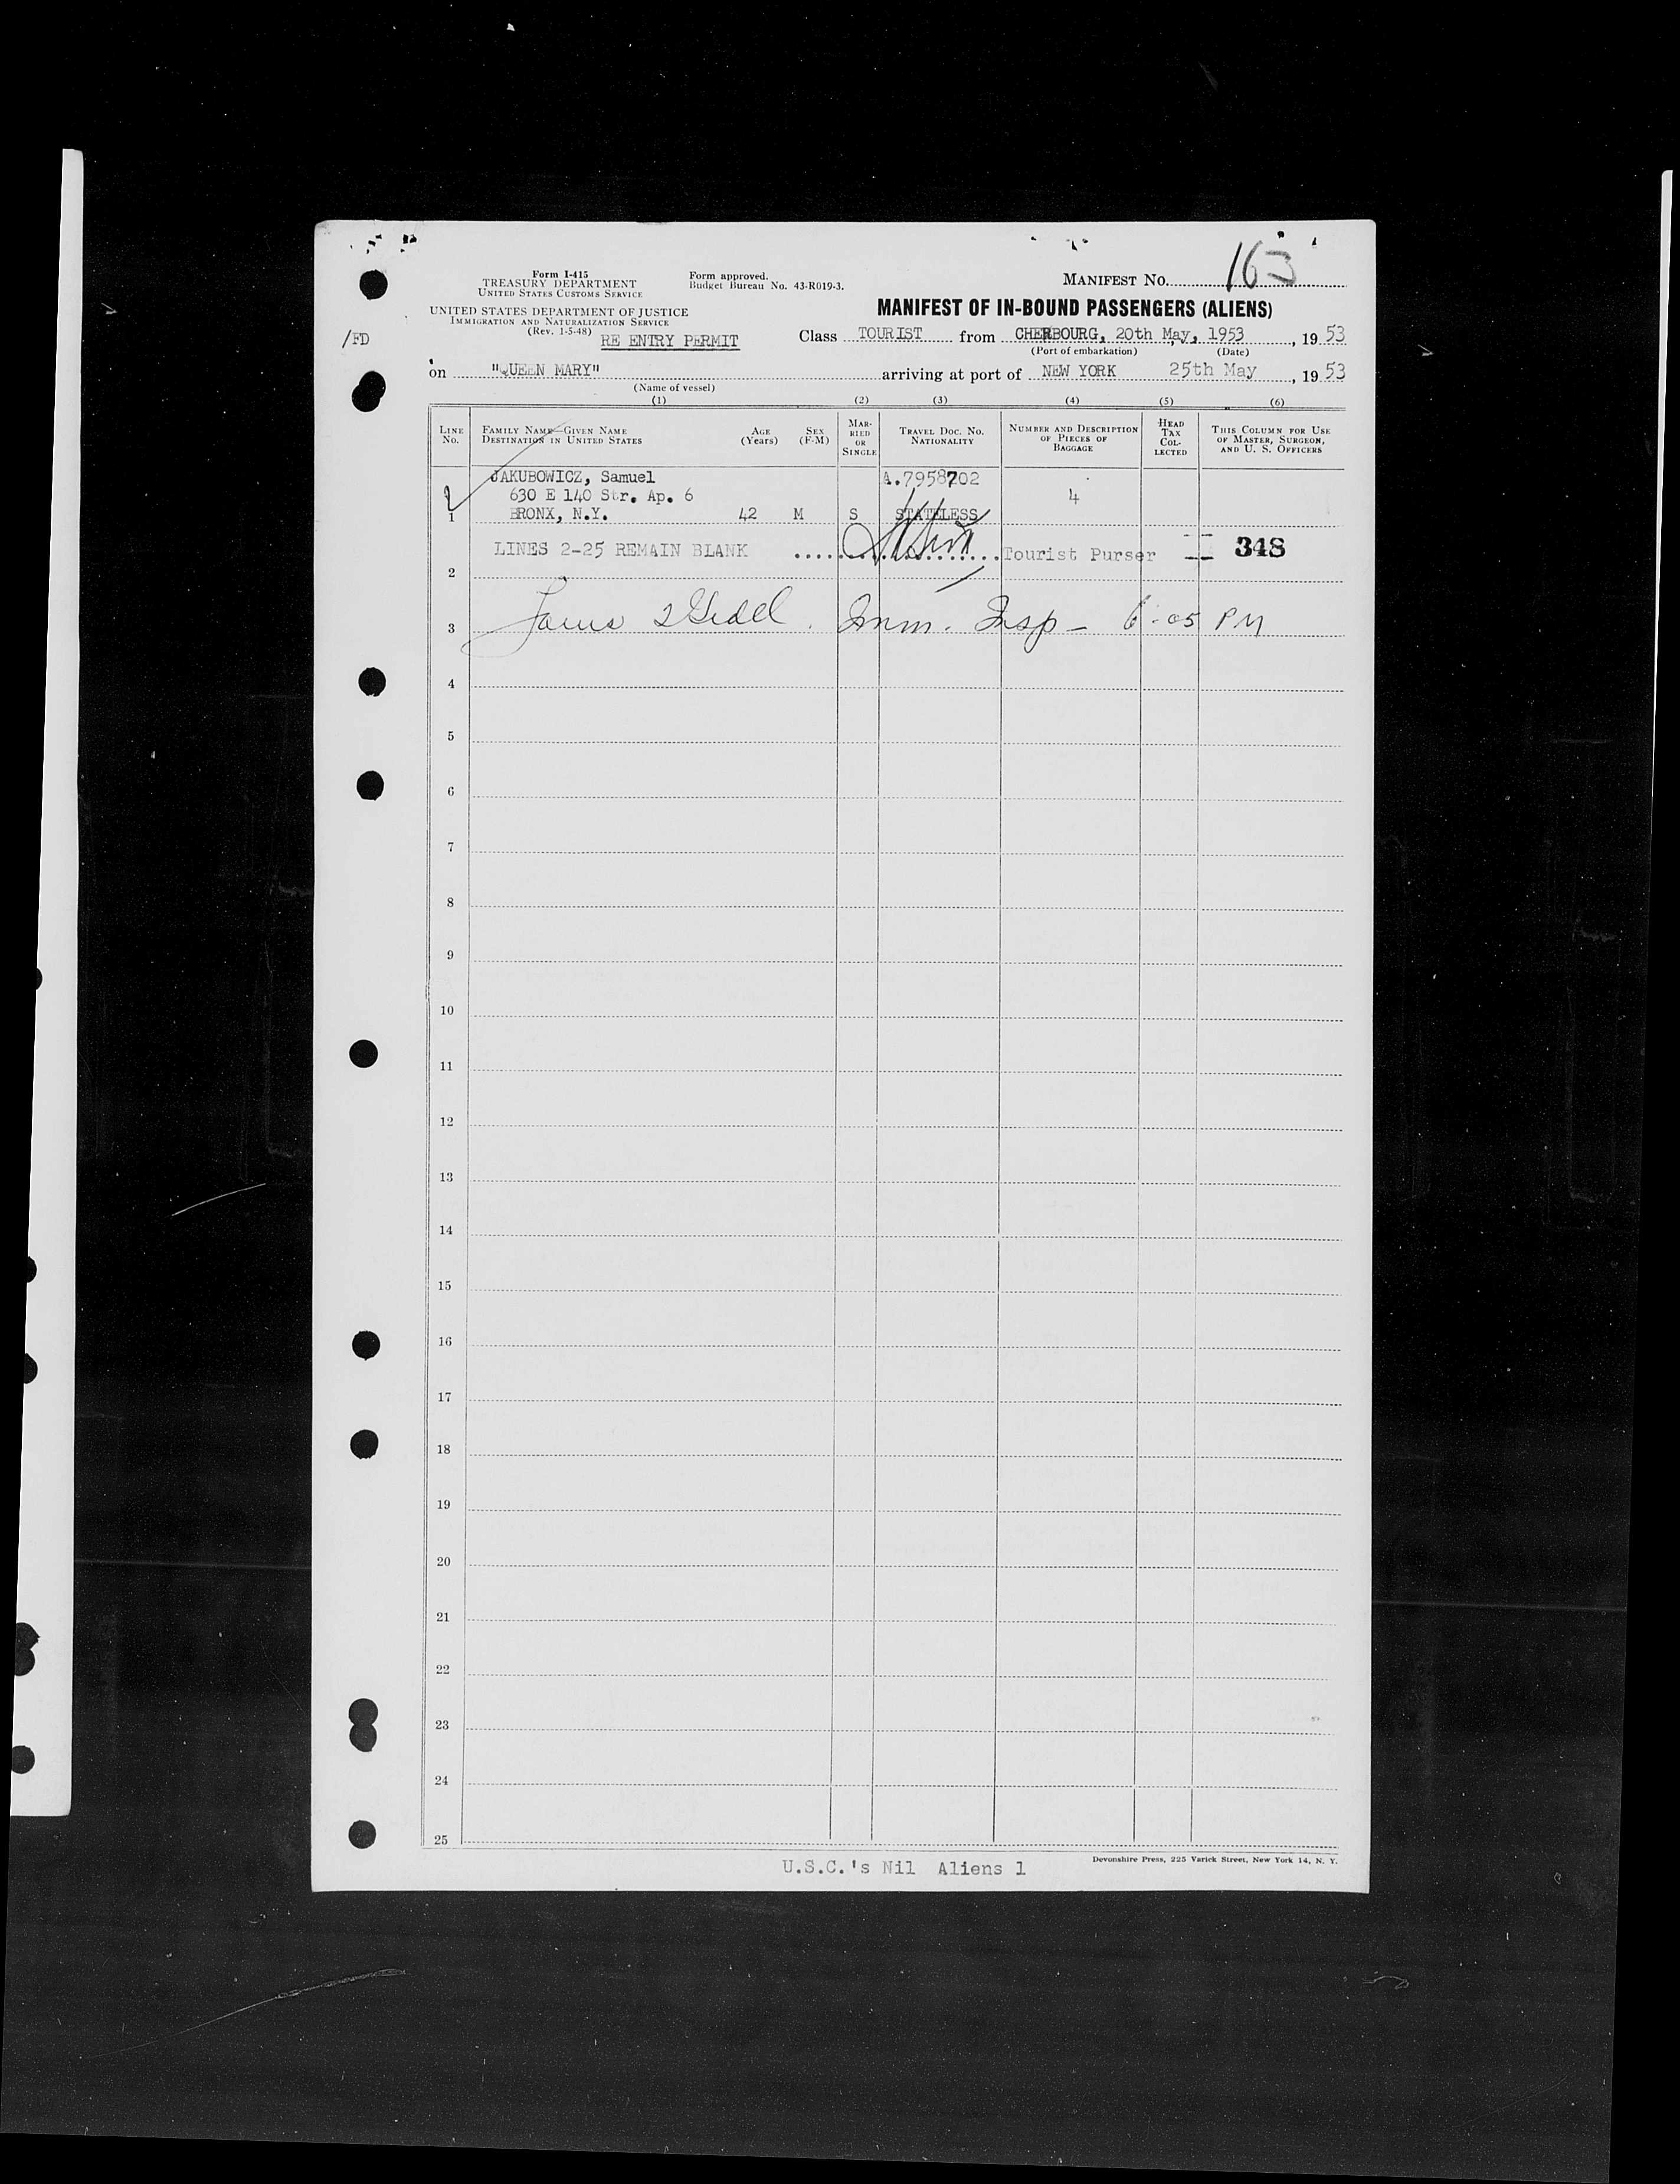 Form I-415
TREASURY DEPARTMENT
UNITED STATES CUSTOMS SERVICE
UNITED STATES DEPARTMENT OF JUSTICE
IMMIGRATION AND NATURALIZATION SERVICE
(Rev. 1-5-48)
Form approved.
Budget Bureau No. 43-R019-3.
MANIFEST No. 163
MANIFEST OF IN-BOUND PASSENGERS (ALIENS)
/FD
RE ENTRY PERMIT
Class TOURIST from CHERBOURG, 20th May, 1953, 19 53
(Port of embarkation) (Date)
on "QUEEN MARY" arriving at port of NEW YORK 25th May, 19 53
(Name of vessel)
(1) (2) (3) (4) (5) (6)
LINE No.
FAMILY NAME—GIVEN NAME
DESTINATION IN UNITED STATES
AGE (Years)
SEX (F-M)
MARRIED OR SINGLE
TRAVEL DOC. NO.
NATIONALITY
NUMBER AND DESCRIPTION OF PIECES OF BAGGAGE
HEAD TAX COLLECTED
THIS COLUMN FOR USE OF MASTER, SURGEON, AND U. S. OFFICERS
JAKUBOWICZ, Samuel A.7958702
630 E 140 Str. Ap. 6 4
1 BRONX, N.Y. 42 M S STATELESS
LINES 2-25 REMAIN BLANK Tourist Purser 348
2
3 Imm. Insp - 6:05 PM
4
5
6
7
8
9
10
11
12
13
14
15
16
17
18
19
20
21
22
23
24
25
U.S.C.'s Nil Aliens 1
Devonshire Press, 225 Varick Street, New York 14, N. Y.